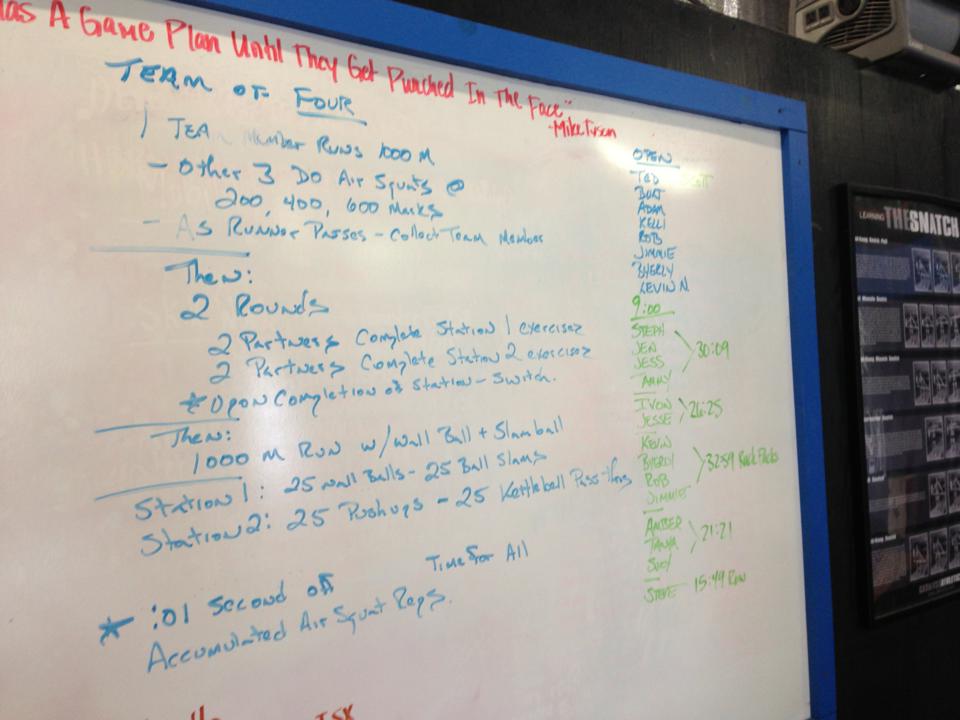 Has A Game Plan Until They Get Punched In The Face"
-Mike Tyson
TEAM OF FOUR
1 TEA Member RUNS 1000 M
- Other 3 Do Air Squats @
200, 400, 600 Marks
- As Runner Passes - Collect Team Member
Then:
2 Rounds
2 Partners Complete Station 1 exercises
2 Partners Complete Station 2 exercises
* Upon Completion of Station - Switch.
Then:
1000 M Run w/ Wall Ball + Slamball
Station 1: 25 Wall Balls - 25 Ball Slams
Station 2: 25 Pushups - 25 Kettleball Pass-thrus
Time for All
* :01 Second off
Accumulated Air Squat Reps.
OPEN
TED
BURT
ADAM
KELLI
ROB
JIMMIE
BYERLY
KEVIN N.
9:00
STEPH
JEN
JESS
TAMMY
30:09
IVON
JESSE
26:25
KEVIN
BYERLY
ROB
JIMMIE
32:59 Ruck Packs
AMBER
TANYA
SUEY
21:21
STEVE 15:49 Run
LEARNING THE SNATCH